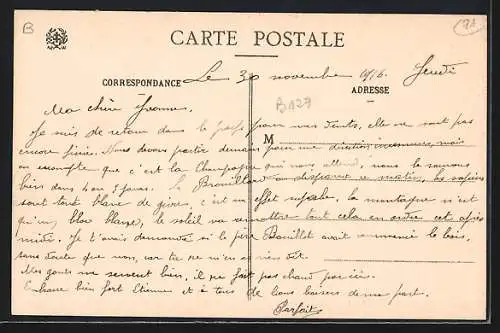 B
98
CARTE POSTALE
CORRESPONDANCE
Le 30 novembre 1916. Jeudi
ADRESSE
B129
Ma chère Yvonne,
Je suis de retour dans le pour mes dents, elles ne sont pas
M
encore finies. Nous devons partir demain pour une direction inconnue, mais
on compte que c'est la Champagne qui nous attend, nous le saurons
bien dans 4 ou 5 jours. Le Brouillard a disparu ce matin, les sapins
sont tous blanc de givre, c'est un effet superbe, la montagne n'est
qu'un bloc blanc, le soleil va remettre tout cela en ordre cet après
midi. Je t'avais demandé si le père Bouillet avait commencé le bois,
sans doute que non, car tu ne m'en as rien dit.
Mes gants me servent bien, il ne fait pas chaud par ici.
Embrasse bien fort Etienne et à tous de bons baisers de ma part.
Parfait